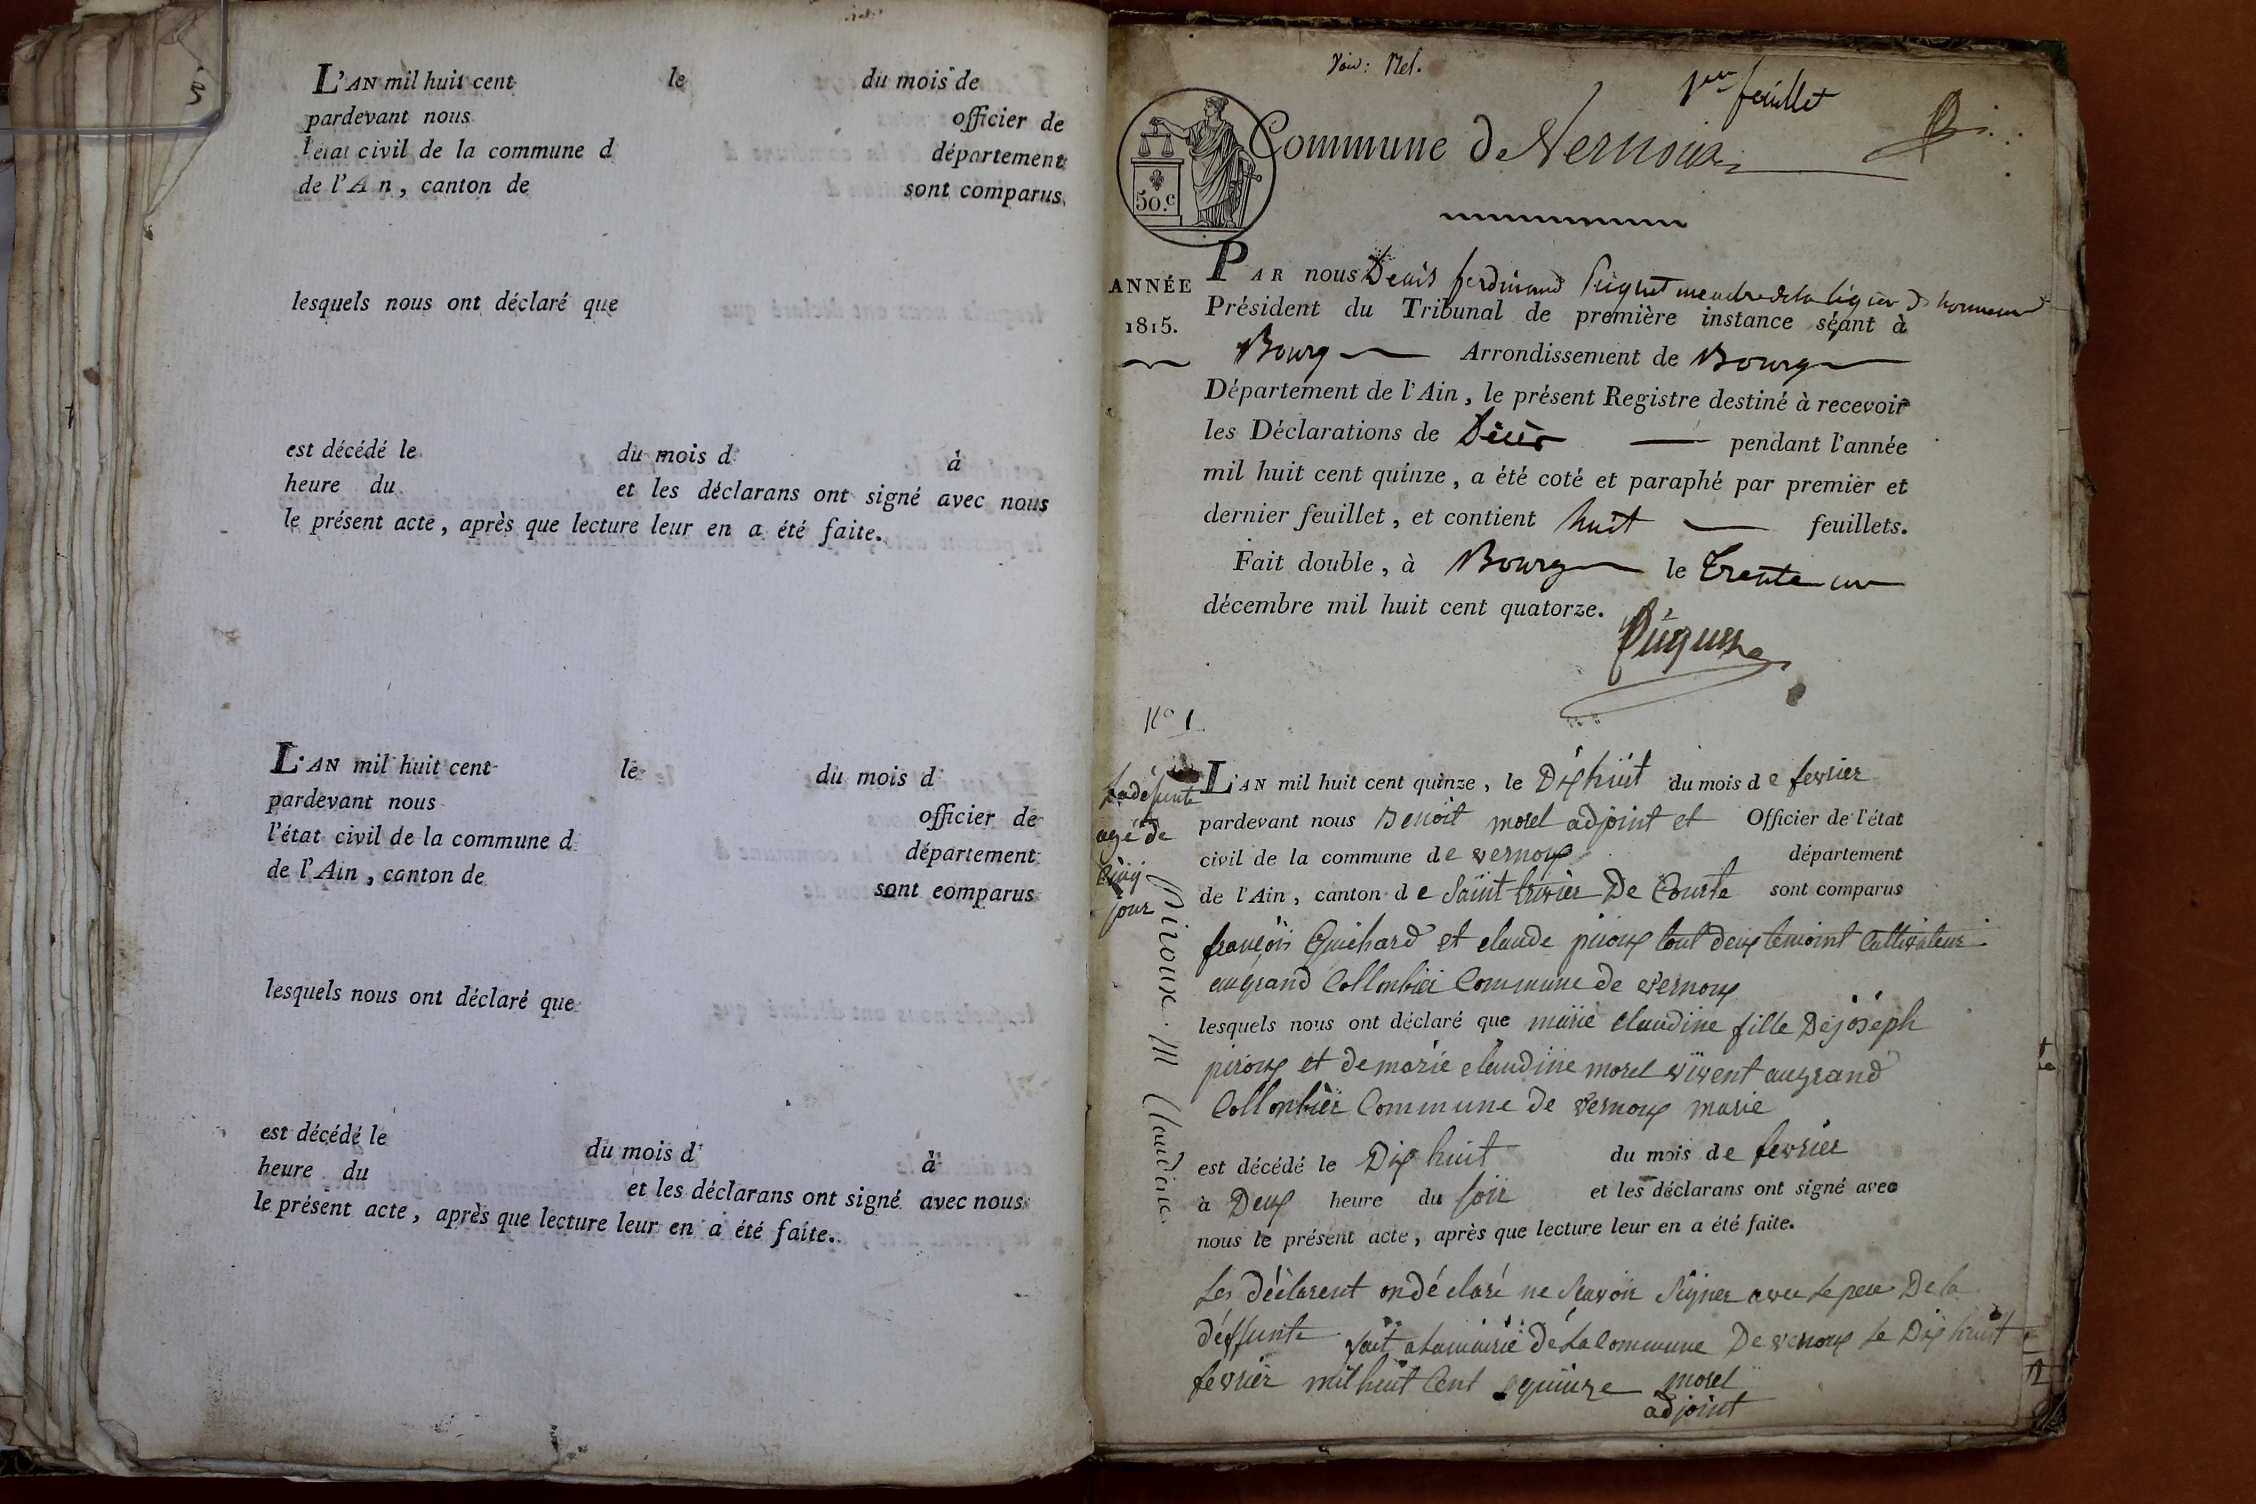 5
L'AN mil huit cent le du mois de
pardevant nous officier de
l'état civil de la commune d département
de l'A n, canton de sont comparus
lesquels nous ont déclaré que
est décédé le du mois d à
heure du et les déclarans ont signé avec nous
le présent acte, après que lecture leur en a été faite.
L'AN mil huit cent le du mois d
pardevant nous officier de
l'état civil de la commune d département
de l'Ain, canton de sont comparus
lesquels nous ont déclaré que
est décédé le du mois d à
heure du et les déclarans ont signé avec nous
le présent acte, après que lecture leur en a été faite.
1er feuillet
Commune de Vernoux
50.c
ANNÉE
1815.
PAR nous Denis ferdinand Piquet membre de la légion d'honneur
Président du Tribunal de première instance séant à
Bourg Arrondissement de Bourg
Département de l'Ain, le présent Registre destiné à recevoir
les Déclarations de Décès pendant l'année
mil huit cent quinze, a été coté et paraphé par premier et
dernier feuillet, et contient huit feuillets.
Fait double, à Bourg le trente un
décembre mil huit cent quatorze.
No 1
Ladéfunte
agé de
cinq
jour
piroux M Claudine.
L'AN mil huit cent quinze, le Dix huit du mois de fevrier
pardevant nous Benoit morel adjoint et Officier de l'état
civil de la commune de vernoux département
de l'Ain, canton de Saint trivier De Courte sont comparus
françois Guichard et claude piroux tout deux temoint Cultivateur
au grand Collonbier Commune de vernoux
lesquels nous ont déclaré que marie claudine fille De joséph
piroux et de marie claudine morel vivent au grand
Collonbier Commune de vernoux marie
est décédé le Dix huit du mois de fevrier
à Deux heure du soir et les déclarans ont signé avec
nous le présent acte, après que lecture leur en a été faite.
Les déclarent on déclaré ne Savoir Signer avec Le pere De la
déffunte fait a La mairie dé La Commune De vernoux Le Dix huit
fevrier mil huit Cent quinze morel
adjoint